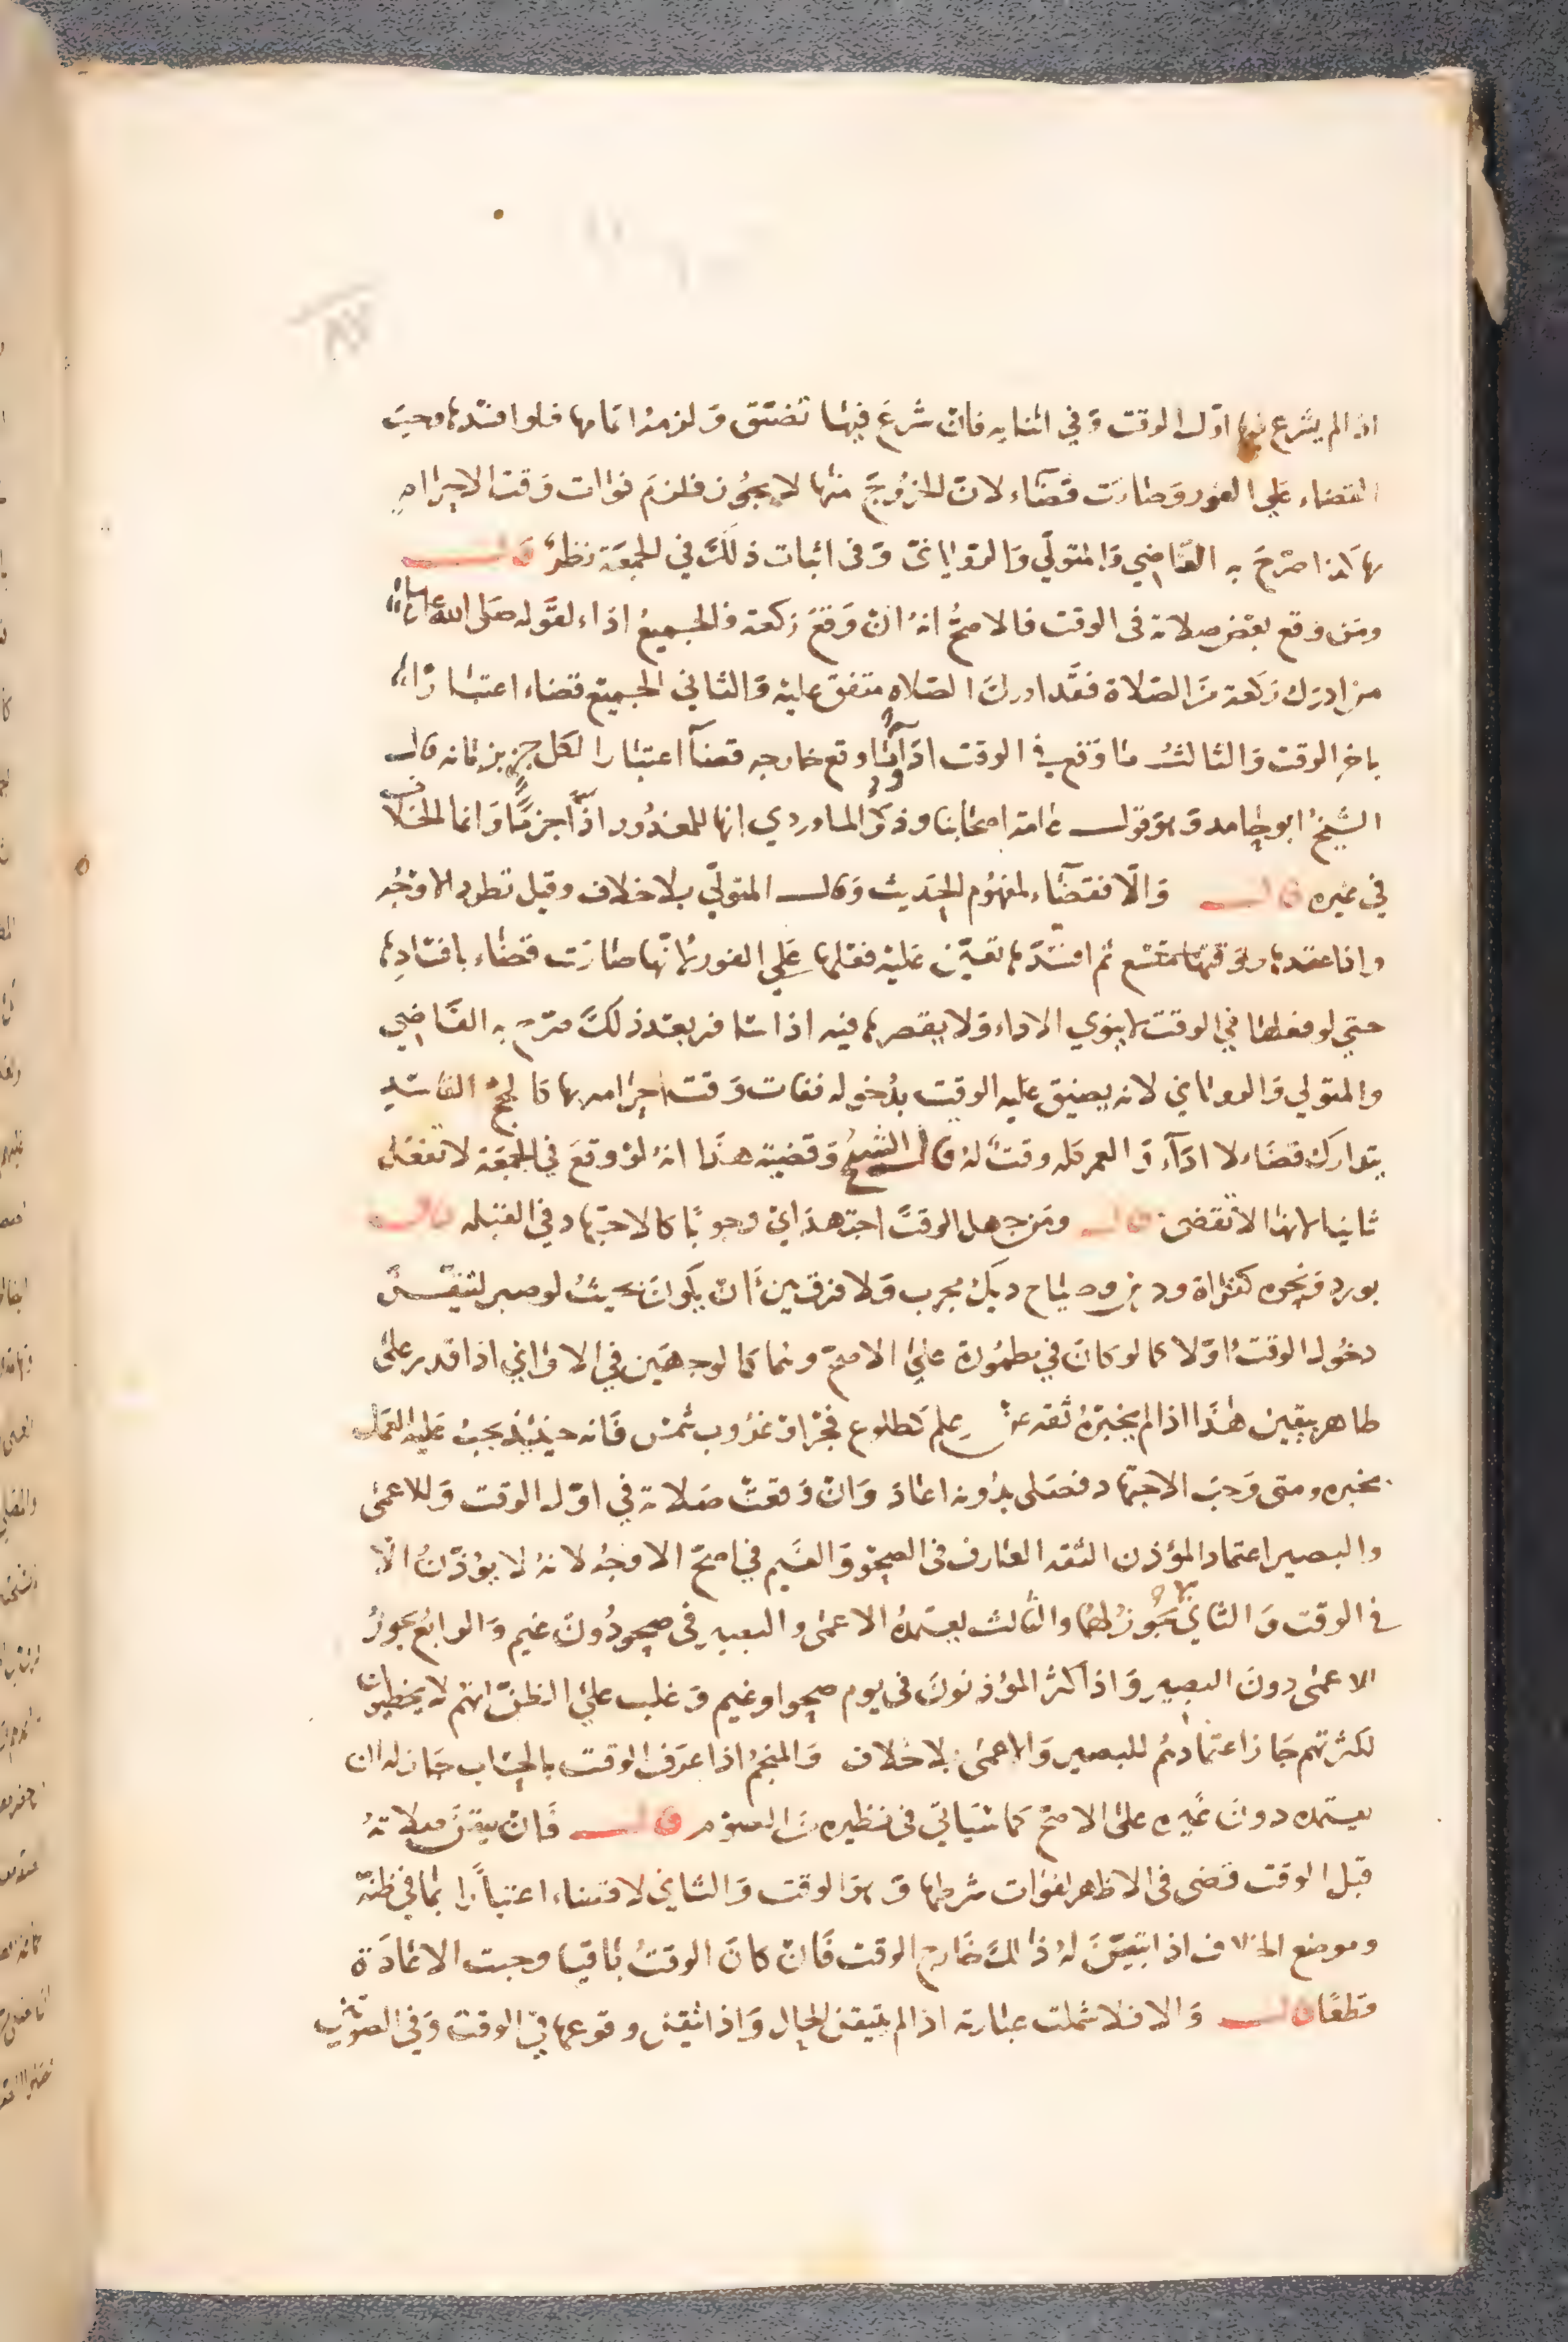 اذا لم يشرع فيها اوّل الوقت وَفي اثنايه فانْ شَرعَ فيهَا تضيّق وَلزمهُ اتمامها فلو افسَدها وجبَ
القضاء عَلي الفور وَصارَت قضَاء لانّ الخروُجَ منها لا يجُوز فلزمَ فوَات وَقت الاحرامِ
بها كذا صرّحَ به القاضِي وَالمتولّي وَالرويَانيّ وَفى اثبات ذلكَ في الجمعَة نظرٌ قال
ومَن وقع بَعْض صلاته فى الوقت فالاصحُّ انهُ انْ وَقعَ ركعة فالجَميعُ اداء لقَوله صَلى الله عليه
من ادرَك ركعَة منَ الصَلاة فقَد ادركَ الصَلاه متفق عليهْ وَالثاني الجميع قضاء اعتبَارًا
باخر الوقت وَالثالثُ ما وَقع في الوقت ادَآء وما وقع خارجه قضآء اعتبارا لكل جزء بزمانه قال
الشَيخُ ابو حامد وَهوَ قول عَامة اصحابنا وذكرَ الماوردي انها للمعذُور ادَآء جزمًا وَانما الخلَاف
في غيره قال وَالّا فقضَاء لمفهُوم الحَديث وَقال المتولّي بلا خلاف وقيل تطرد الاوجُه
واذا عقدها ووَقتها متّسع ثم افسَدَها تعيّن عَليهْ فعْلها عَلي الفور لانّها صَارَت قضَاء بافسَادِها
حتي لو فعلها في الوقت لا ينوي الاداء وَلا يقصرها فيه اذا سَافر بعَد ذلكَ صَرّح به القَاضِي
والمتولي وَالرويَاني لانه يضيق عليه الوقت بدُخوله ففات وَقت احرامه بها كالحجّ الفَاسِد
يتدارك قضَاء لا ادَآء وَالعمر كله وقتٌ لهُ قال الشيخُ وَقضيّة هذَا انهُ لوْ وقعَ في الجمعَة لا تفعَل
ثانيا لانهَا لا تقضى قال ومَن جهل الوقتَ اجتهدَ ايْ وجوبًا كالاجتهاد في القبْله قال
بورد وَنحوه كقرَاة ودرس وصيَاح ديك مجرب وَلا فرق بَينَ اَن يكوُنَ بحيثُ لو صبر لتيقّنَ
دخُول الوقت اوْلا كما لو كانَ في مطمُورة علي الاصحّ وهما كالوجهَين في الاوَاني اذا قدر على
طاهر بيقين هذَا اذا لم يخبرَهُ ثقه عن علم كطلوع فجْر اوْ غرُوب شَمْس فَانه حينئذ يجبُ عَليه العمَل
بخبره ومتى وَجبَ الاجتهاد فصَلى بدُونه اعَادَ وَانْ وَقعتْ صَلاته في اوّل الوقت وَللاعمىٰ
والبصير اعتماد المؤذن الثقه العَارف فى الصحْو وَالغَيم في اصَحّ الاوجُه لانهُ لا يؤذّنُ الّا
في الوقت وَالثاني لا يجُوز لهما وَالثالث يعتمدُهُ الاعمىٰ والبصير فى صحو دُونَ غيم وَالرابعُ يجوزُ
الاعمىٰ دونَ البصير وَاذا كثرَ المؤذنونَ فى يوم صحو او غيم وَغلب عليَ الظنّ انهم لا يخطيون
لكثرتهم جَاز اعتمَادهُم للبصير وَالاعمىٰ بلا خلَاف وَالمنجمُ اذا عَرَف الوقت بالحسَاب جَاز له ان
يعتمده دونَ غَيره علىَ الاصحّ كما سَيَاتي فى نظيره منَ الصوْم قال فَانْ تيقنَ صلاتهُ
قبل الوقت قضى فى الاظهر لفوَات شرطها وَهوَ الوقت وَالثاني لا قضاء اعتبَارًا بمَا في ظنّهِ
وموضع الخلاف اذا تبيّنَ لهُ ذلكَ خَارج الوقت فَانْ كانَ الوقتُ بَاقيا وجبت الاعَادَة
قطعًا قال وَالا فلا شملت عبَارته اذا لم يتيقن الحال وَاذا تيقن وقوعها في الوقت وَفي الصوْمِ